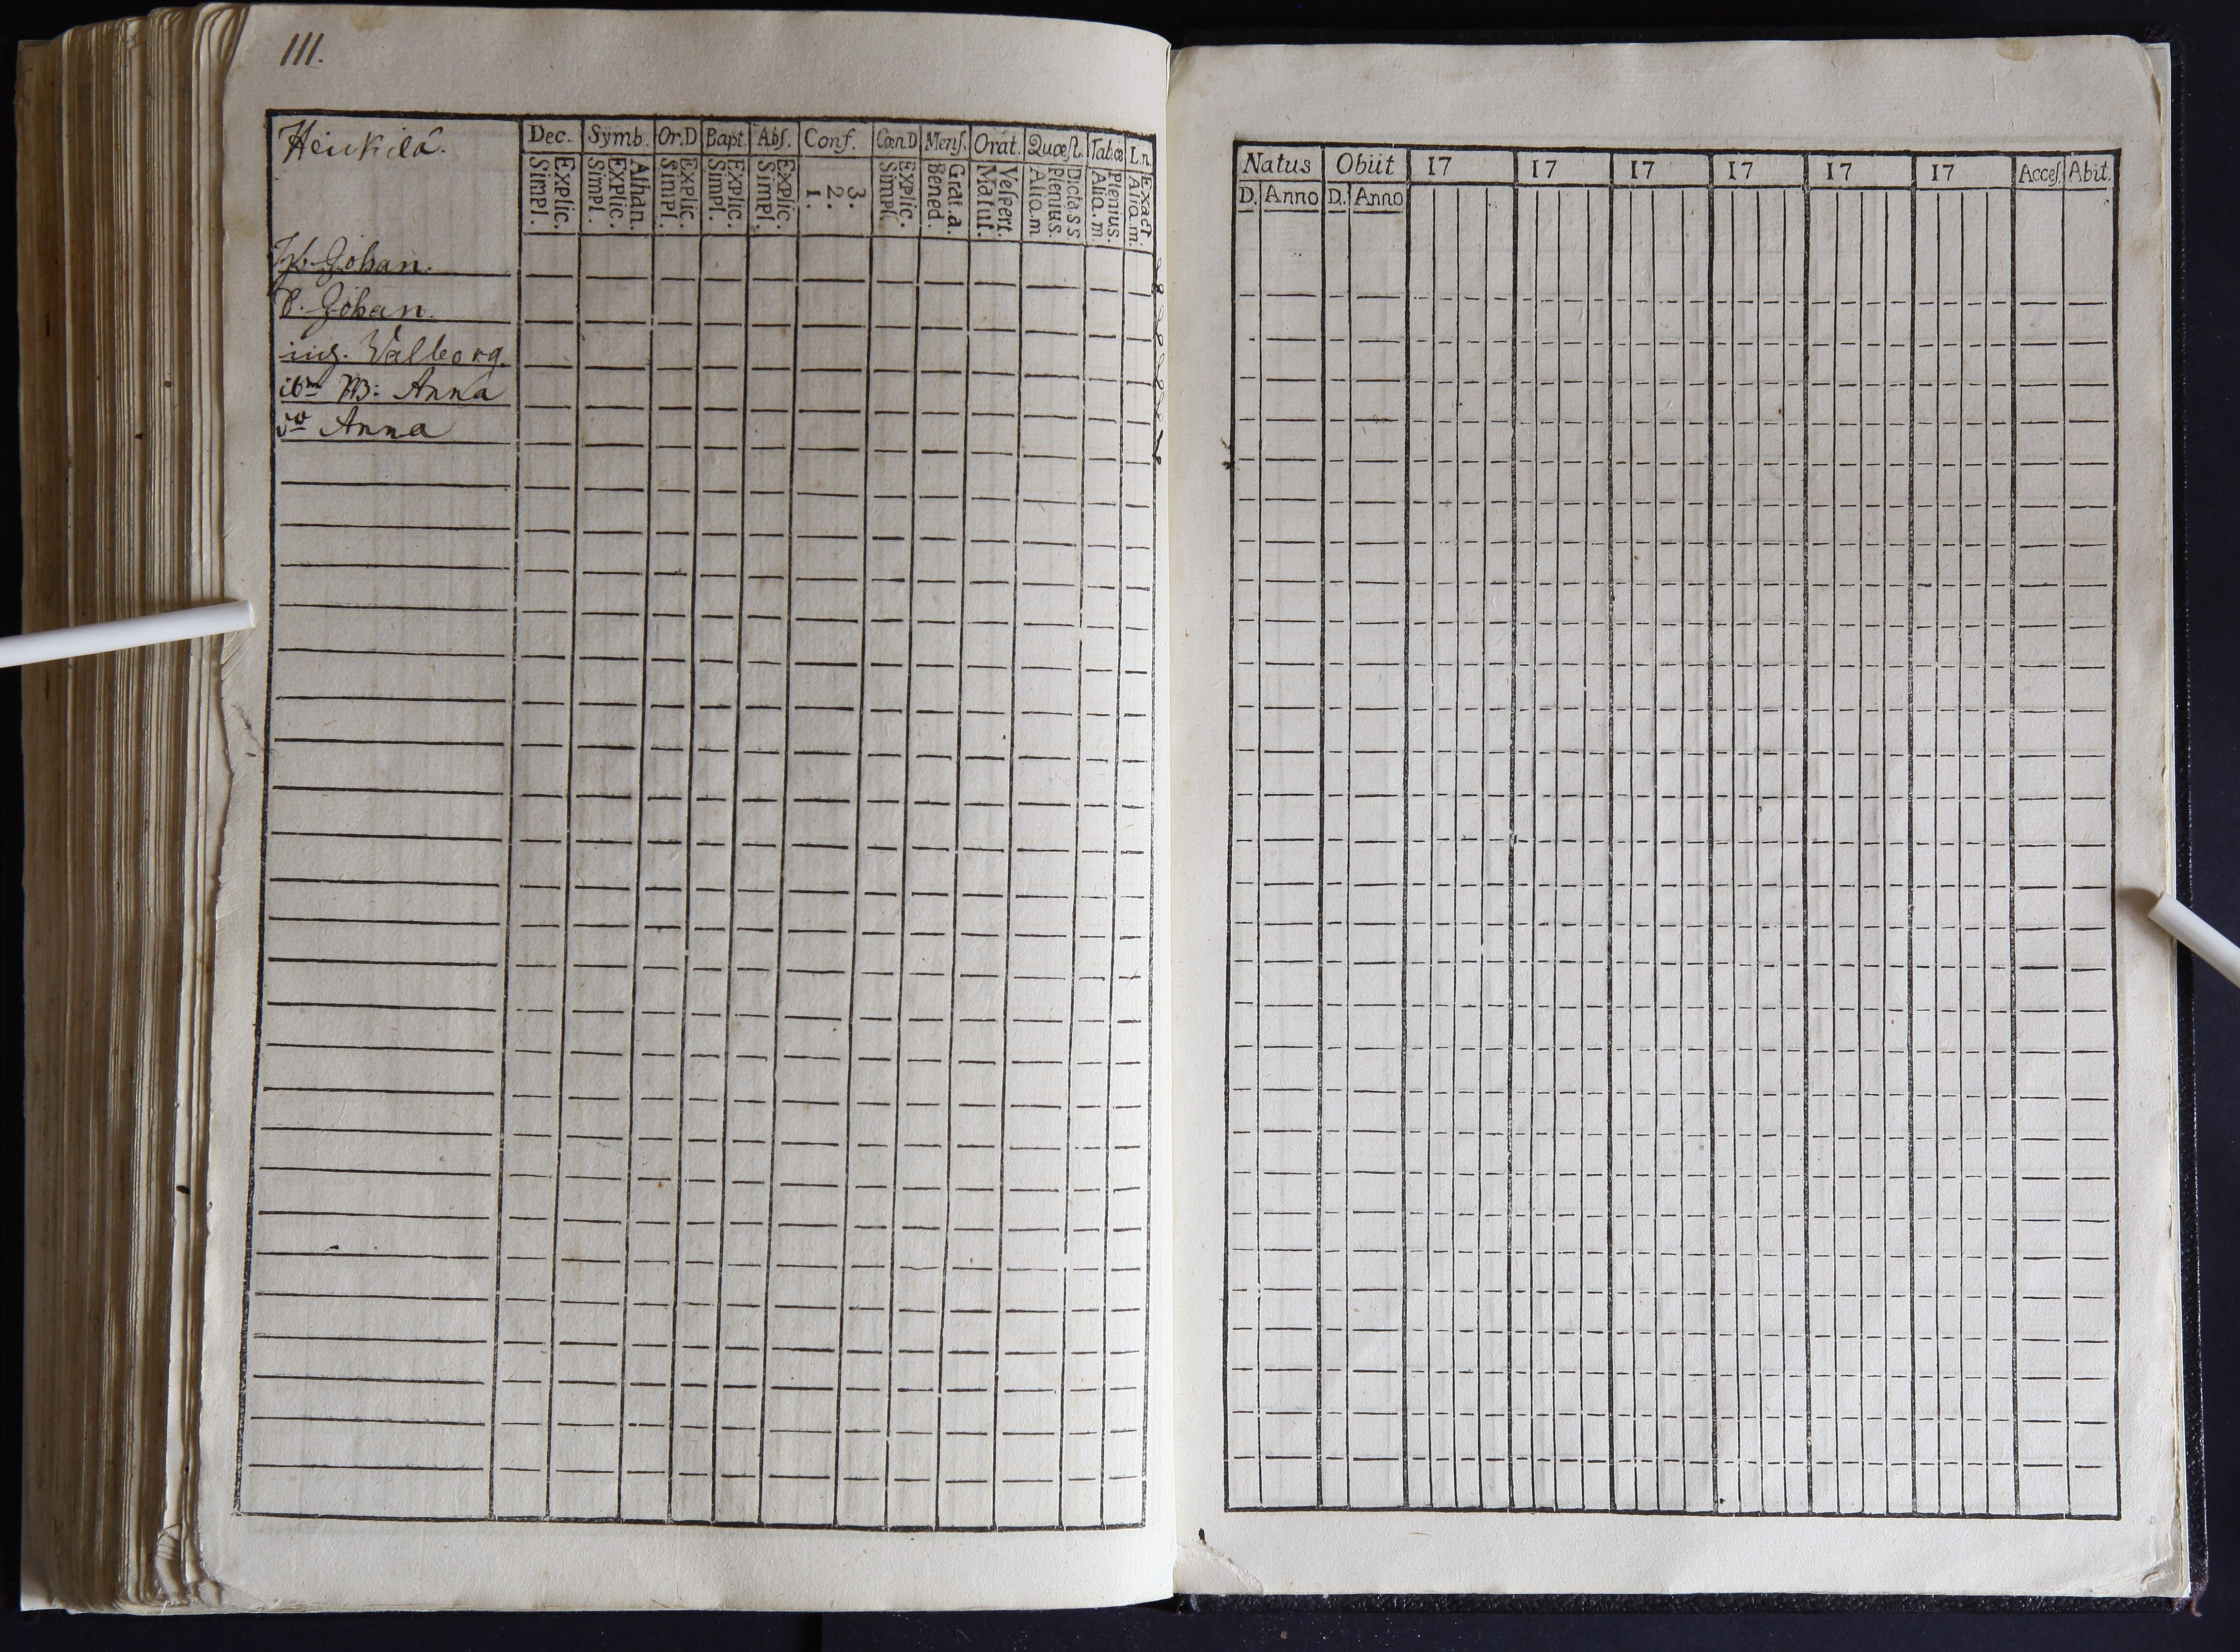 111.
Heickilä.
Dec. Symb. Or.D Bapt. Abs. Conf. Cœn.D Mens. Orat. Quæst. Tab.œ I.n.
Explic. Simpl. Athan. Explic. Simpl. Explic. Simpl. Explic. Simpl. Explic. Simpl. 3. 2. 1. Explic. Simpl. Grat.a. Bened. Vespert. Matut. Dicta.s.s. Plenius. Alio.m Plenius. Alia.m. Exact. Alio.m.
Johan.
Johan.
Walborg.
Anna
Anna
Natus Obiit 17 17 17 17 17 17 Acces. Abit.
D. Anno D. Anno